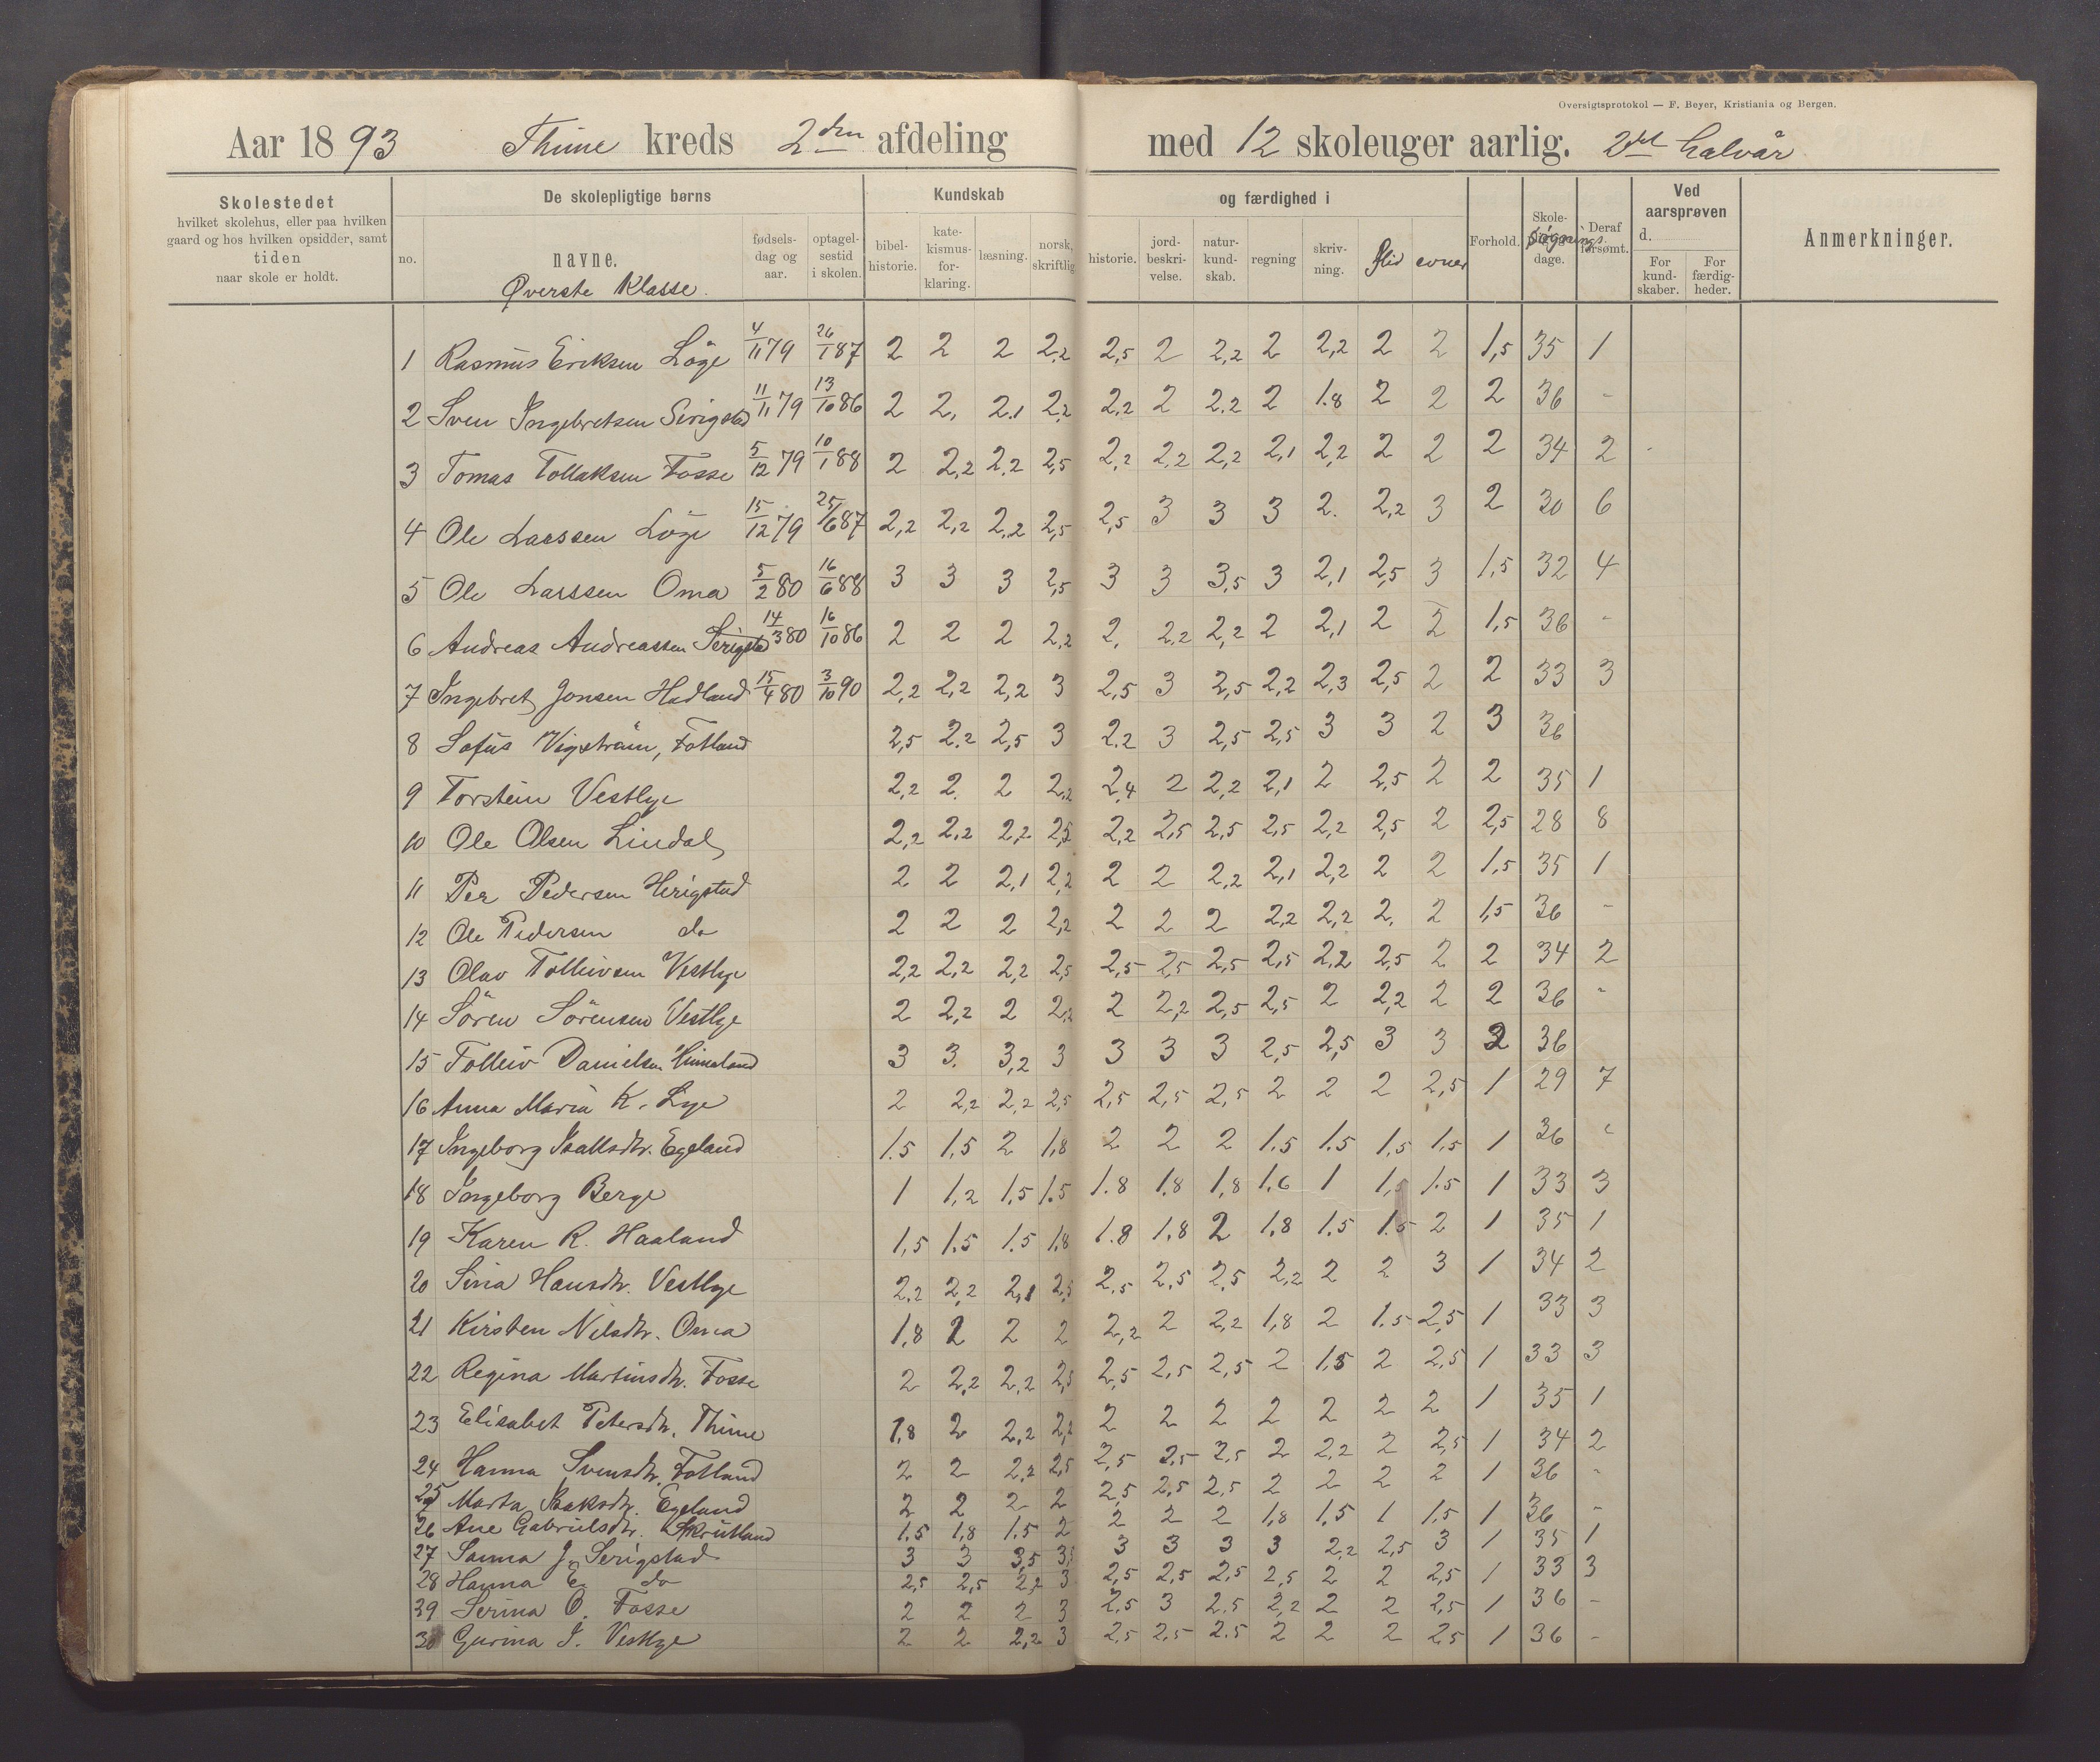 Oversigtsprotokol — F. Beyer, Kristiania og Bergen.
Aar 1893 Thime kreds 2den afdeling med 12 skoleuger aarlig. 2det halvår
Skolestedet
hvilket skolehus, eller paa hvilken
gaard og hos hvilken opsidder, samt
tiden
naar skole er holdt.
De skolepligtige børns
no.
navne.
Øverste Klasse.
fødsels-
dag og
aar.
optagel-
sestid
i skolen.
Kundskab og færdighed i
bibel-
historie.
kate-
kismus-
for-
klaring.
læsning.
norsk,
skriftlig
historie.
jord-
beskri-
velse.
natur-
kund-
skab.
regning
skriv-
ning.
flid
evner
Forhold.
Skole-
søgnings-
dage.
Deraf
forsømt.
Ved
aarsprøven
d.
For
kund-
skaber.
For
færdig-
heder.
Anmerkninger.
1 Rasmus Eriksen Löge 4/11 79 26/1 87 2 2 2 2,2 2,5 2 2,2 2 2,2 2 2 1,5 35 1
2 Sven Ingebretsen Serigstad 11/11 79 13/10 86 2 2, 2.1 2,2 2,2 2 2.2 2 1.8 2 2 2 36 -
3 Tomas Tollaksen Fosse 5/12 79 10/1 88 2 2,2 2,2 2,5 2,2 2,2 2,2 2,1 2,2 2 2 2 34 2
4 Ole Larssen Löge 15/12 79 25/6 87 2,2 2,2 2,2 2,5 2,5 3 3 3 2. 2,2 3 2 30 6
5 Ole Larssen Oma 5/2 80 16/6 88 3 3 3 2,5 3 3 3,5 3 2,1 2,5 3 1,5 32 4
6 Andreas Andreassen Serigstad 14/3 80 16/10 86 2 2 2 2,2 2, 2,2 2,2 2 2,1 2 2 1,5 36 -
7 Ingebret Jonsen Hadland 15/4 80 3/10 90 2,2 2,2 2,2 3 2,5 3 2,5 2,2 2,3 2,5 2 2 33 3
8 Sofus Vigström, Fotland 2,5 2.2 2,5 3 2.2 3 2,5 2,5 3 3 2 3 36
9 Torstein Vestlye 2,2 2. 2 2,2 2,4 2 2,2 2,1 2 2,5 2 2 35 1
10 Ole Olsen Lindal 2,2 2,2 2,2 2,5 2,2 2,5 2,5 2,5 2,2 2,5 2 2,5 28 8
11 Per Pedersen Herigstad 2 2 2,1 2,2 2 2 2,2 2,1 2,2 2 2 1,5 35 1
12 Ole Pedersen do 2 2 2 2,2 2 2 2 2,2 2,2 2, 2 1,5 36 -
13 Olav Tolleivsen Vestlye 2,2 2,2 2,2 2,5 2,5 2,5 2,5 2,5 2,2 2,5 2 2 34 2
14 Sören Sörensen Vestlye 2 2,2 2 2,2 2 2,2 2,5 2,5 2 2,2 2 2 36 -
15 Tolleiv Danielsen Himeland 3 3. 3,2 3 3 3 3 2,5 2,5 3 3 2 36
16 Anna Maria K. Lye 2 2,2 2,2 2,5 2,5 2,5 2,5 2 2 2 2,5 1 29 7
17 Ingeborg Isaksdtr. Egeland 1.5 1,5 2 1,8 2 2 2 1.5 1.5 1,5 1,5 1 36 -
18 Ingeborg Berge 1 1,2 1,5 1.5 1.8 1.8 1,8 1.6 1 1,5 1.5 1 33 3
19 Karen R. Haaland 1,5 1.5 1.5 1,8 1.8 1,8 2 1,8 1.5 1.5 2 1 35 1
20 Sina Hansdtr. Vestlye 2.2 2,2 2,1 2,5 2,5 2,5 2,5 2,2 2 2 3 1 34 2
21 Kirsten Nilsdtr. Oma 1,8 2 2 2 2,2 2 2,2 1,8 2 1.5 2,5 1 33 3
22 Regina Martinsdtr. Fosse 2 2,2 2,2 2,5 2,5 2,5 2,5 2 1,5 2 2,5 1 33 3
23 Elisabet Petersdtr. Thime 1,8 2 2,2 2,2 2 2 2 2 2 2 2 1 35 1
24 Hanna Svensdtr. Fotland 2 2 2,2 2,5 2,5 2,5 2,5 2 2,2 2 2,5 1 34 2
25 Marta Isaksdtr. Egeland 2 2 2 2 2,5 2,5 2,5 2 2 2 2 1 36 -
26 Ane Gabrielsdtr. Skrutland 1.5 1,8 1.5 2 2 2 2 1,8 1.5 1 1,5 1 36 -
27 Sanna J. Serigstad 3 3 3,5 3,5 3 3 3 3 2,2 2,5 3 1 35 1
28 Hanna E. do 2,5 2,5 2,2 3 2,5 2,5 2,5 2,5 2 2 2,5 1 33 3
39 Serina O. Fosse 2 2 2 3 2.5 3 2.5 2,2 2 2 2,5 1 36 -
30 Gurina I. Vestlye 2 2 2,2 3 2,5 2,5 2.5 2 2 2 2,5 1 36 -